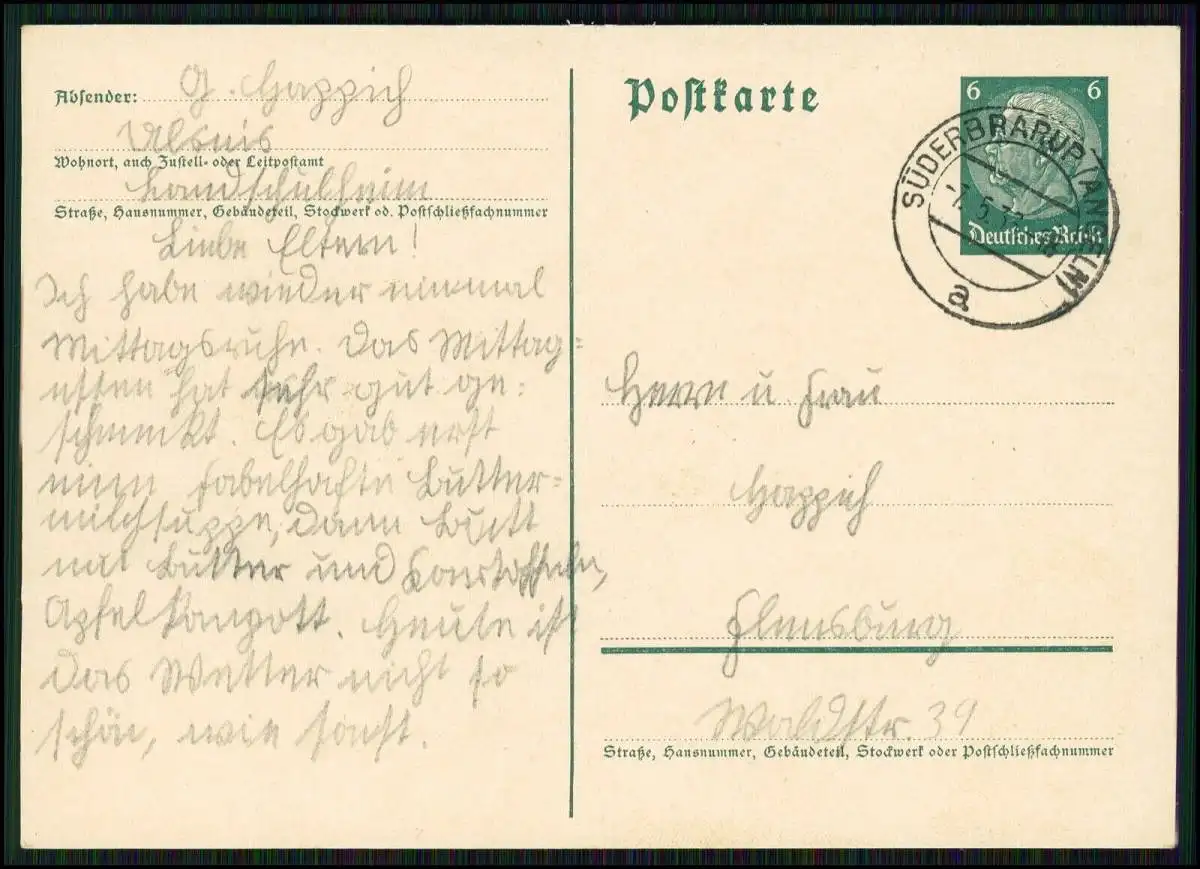 Absender: G. Happich
Ulsnis
Wohnort, auch Zustell- oder Leitpostamt
Landschulheim
Straße, Hausnummer, Gebäudeteil, Stockwerk od. Postschließfachnummer
Liebe Eltern!
Ich habe wieder einmal
Mittagsruhe. Das Mittag=
essen hat sehr gut ge=
schmekt. Es gab erst
eine fabelhafte Butter=
milchsuppe, dann Butt
mit Butter und Kartoffeln,
Apfelkompott. Heute ist
das Wetter nicht so
schön, wie sonst.
Postkarte
6 6
Deutsches Reich
SÜDERBRARUP (ANGELN)
a
Herrn u. Frau
Happich
Flensburg
Waldstr. 39
Straße, Hausnummer, Gebäudeteil, Stockwerk oder Postschließfachnummer